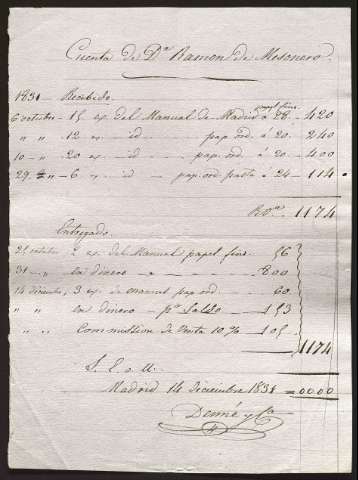 Cuenta de Dn. Ramon de Mesonero.
1831 Recibido
papel fino
6 octubre - 15 ex. del Manual de Madrid à 28 - 420
" " 12 ex - id - pap. ord. à 20 - 240
10 - " 20 ex - id - pap. ord. à 20 - 400
29 " - 6 - id - pap. ord. à 24 - 114
Rs. vn. 1174
Entregado
21 octubre 2 ex. del Manual papel fino. 56
31 - " en dinero - 800
14 diciembre, 3 ex. de manual pap. ord - 60
" " en dinero - pr. Saldo - 153
" " Commission de Venta 10 % - 105
1174
S. E. o U.
Madrid 14 Diciembre 1831 = 00.00
Denné y Ca.